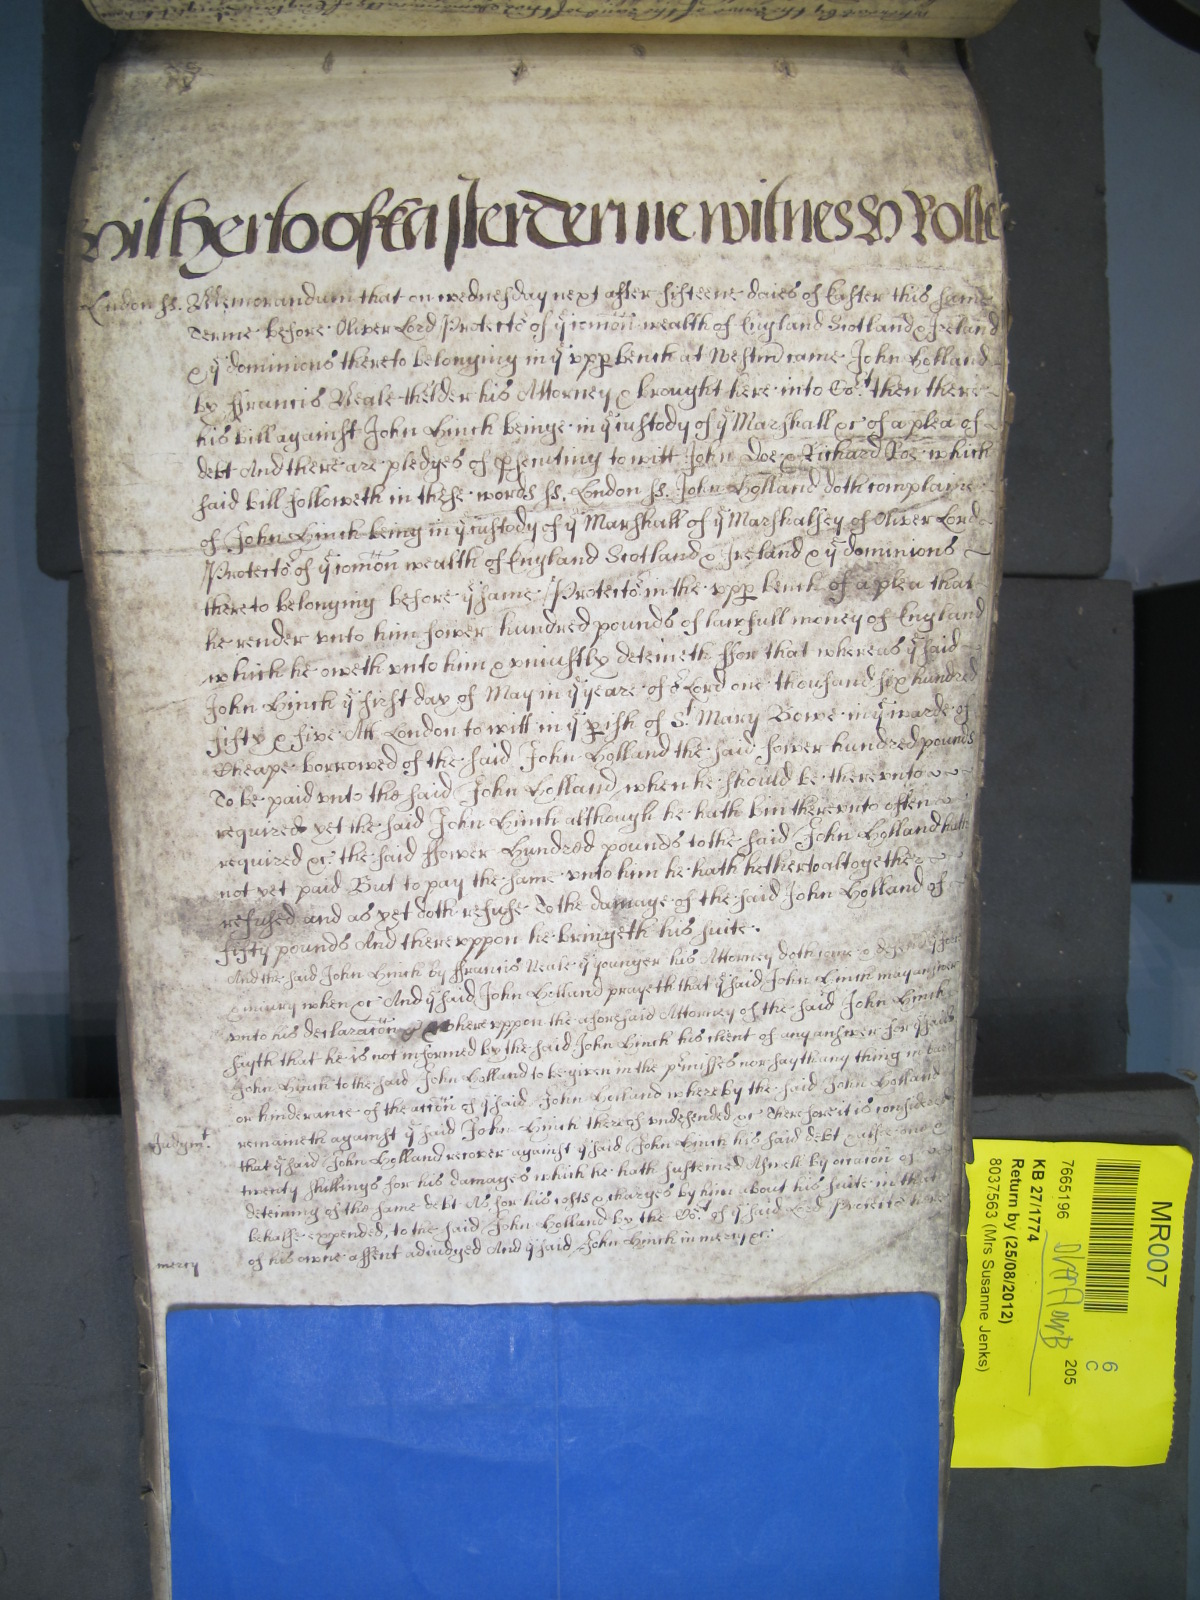 hithertoo of Easter Terme witness H Rolle
London ss. Memorandum that on wednesday next after fifteene daies of Easter this same
Terme before Oliver Lord Protector of ye comon wealth of England Scotland & Ireland
& ye dominions thereto belonging in ye upp bench at Westmr came John Holland
by ffrancis Neale thelder his Attorney & brought here into Cort then there
his bill against John Hinck beinge in ye custody of ye Marshall &c of a plea of
debt And there are pledges of psecuting to witt John Doe & Richard Roe which
said bill followeth in these words ss. London ss. John Holland doth complaine
of John Hinck being in ye custody of ye Marshall of ye Marshalsey of Oliver Lord
Protector of ye comon wealth of England Scotland & Ireland & ye dominions
thereto belonging before ye same Protector in the upp bench of a plea that
he render unto him fower hundred pounds of lawfull money of England
which he oweth unto him & uniustly deteineth ffor that whereas ye said
John Hinck ye first day of May in ye yeare of or Lord one thousand six hundred
fifty & five Att London to witt in ye pish of St Mary Bowe in ye warde of
Cheape borrowed of the said John Holland the said fower hundred pounds
To be paid unto the said John Holland when he should be thereunto
required yet the said John Hinck although he hath bin thereunto often
required &c. the said ffower Hundred pounds to the said John Holland hath
not yet paid But to pay the same unto him he hath hetherto altogether
refused and as yet doth refuse To the damage of the said John Holland of
fifty pounds And thereuppon he bringeth his suite.
And the said John Hinck by ffrancis Neale ye younger his Attorney doth come & defend ye force
& iniury when &c And ye said John Holland prayeth that ye said John Hinck may answer
unto his declaracon &c whereuppon the aforesaid Attorney of the said John Hinck
sayth that he is not informed by the said John Hinck his client of any answer for ye said
John Hinck to the said John Holland to be given in the pmisses nor sayth any thing in barr
or hinderance of the accon of ye said John Holland whereby the said John Holland
remaineth against ye said John Hinck thereof undefended &c Therefore it is considered
Judgmt. that ye said John Holland recover against ye said John Hinck his said debt & alsoe one &
twenty shillings for his damages which he hath susteined Aswell by occacon of
deteining of the same debt As for his costs & charges by him about his suite in that
behalfe expended, to the said John Holland by the Cort of ye said Lord Protector here
mercy of his owne assent adiudged And ye said John Hinck in mercy &c.
MR007
6
C
7665196 205
KB 27/1774
Return by (25/08/2012)
8037563 (Mrs Susanne Jenks)